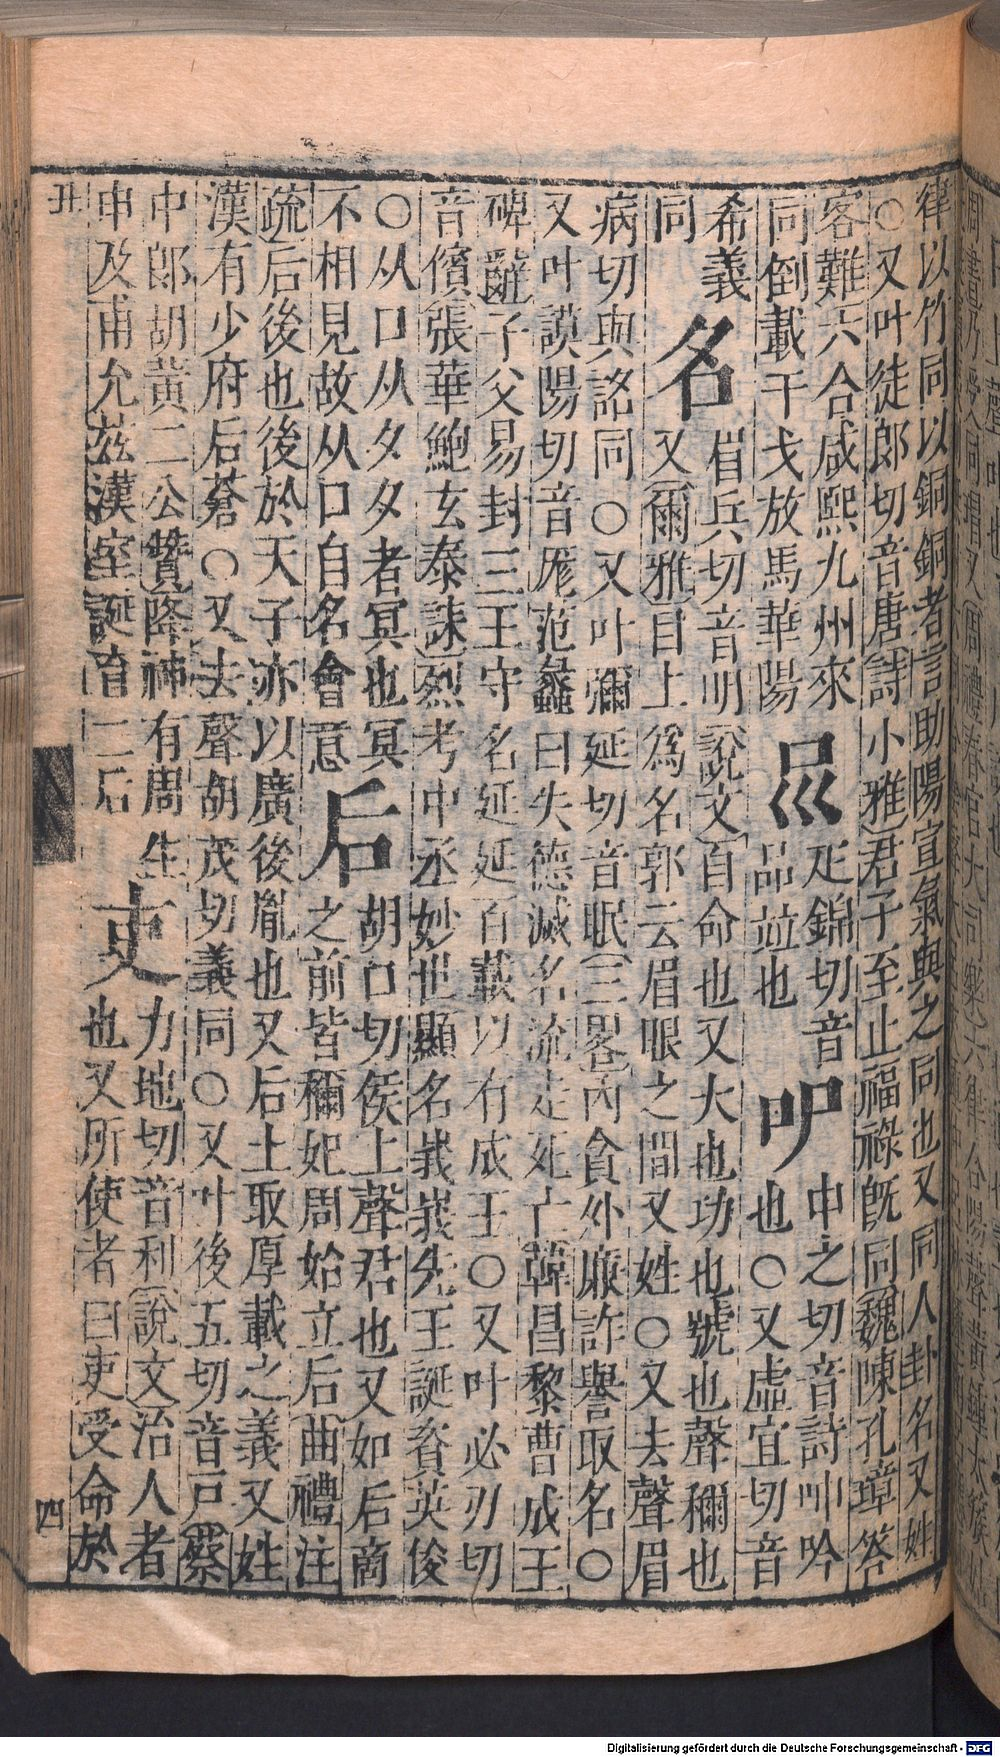 律以竹同以銅銅者言助陽宣氣與之同也又同人卦名又姓
○又叶徒郎切音唐詩小雅君子至止福祿既同魏陳孔璋答
客難六合咸熙九州來
同倒載干戈放馬華陽
㕣
疋錦切音
品竝也
吅
申之切音詩吅吟
也○又虛宜切音
希義
同
名
眉兵切音明說文自命也又大也功也號也聲稱也
又爾雅目上為名郭云眉眼之間又姓○又去聲眉
病切與詺同○又叶彌延切音眠三畧內貪外廉詐譽取名○
又叶謨陽切音厖范蠡曰失德滅名流走死亡韓昌黎曹成王
碑雝子父易封三王守名延延百載以有成王○又叶必刃切
音儐張華鮑玄泰誄烈考中丞妙世顯名峩峩先王誕資英俊
○从口从夕夕者冥也冥
不相見故从口自名會意
后
胡口切侯上聲君也又如后商
之前皆稱妃周始立后曲禮注
疏后後也後於天子亦以廣後胤也又后土取厚載之義又姓
漢有少府后蒼○又去聲胡茂切義同○又叶後五切音戸蔡
中郎胡黃二公贊降神有周生
申及甫允茲漢室誕育二后
吏
力地切音利說文治人者
也又所使者曰吏受命於
四
Digitalisierung gefördert durch die Deutsche Forschungsgemeinschaft - DFG